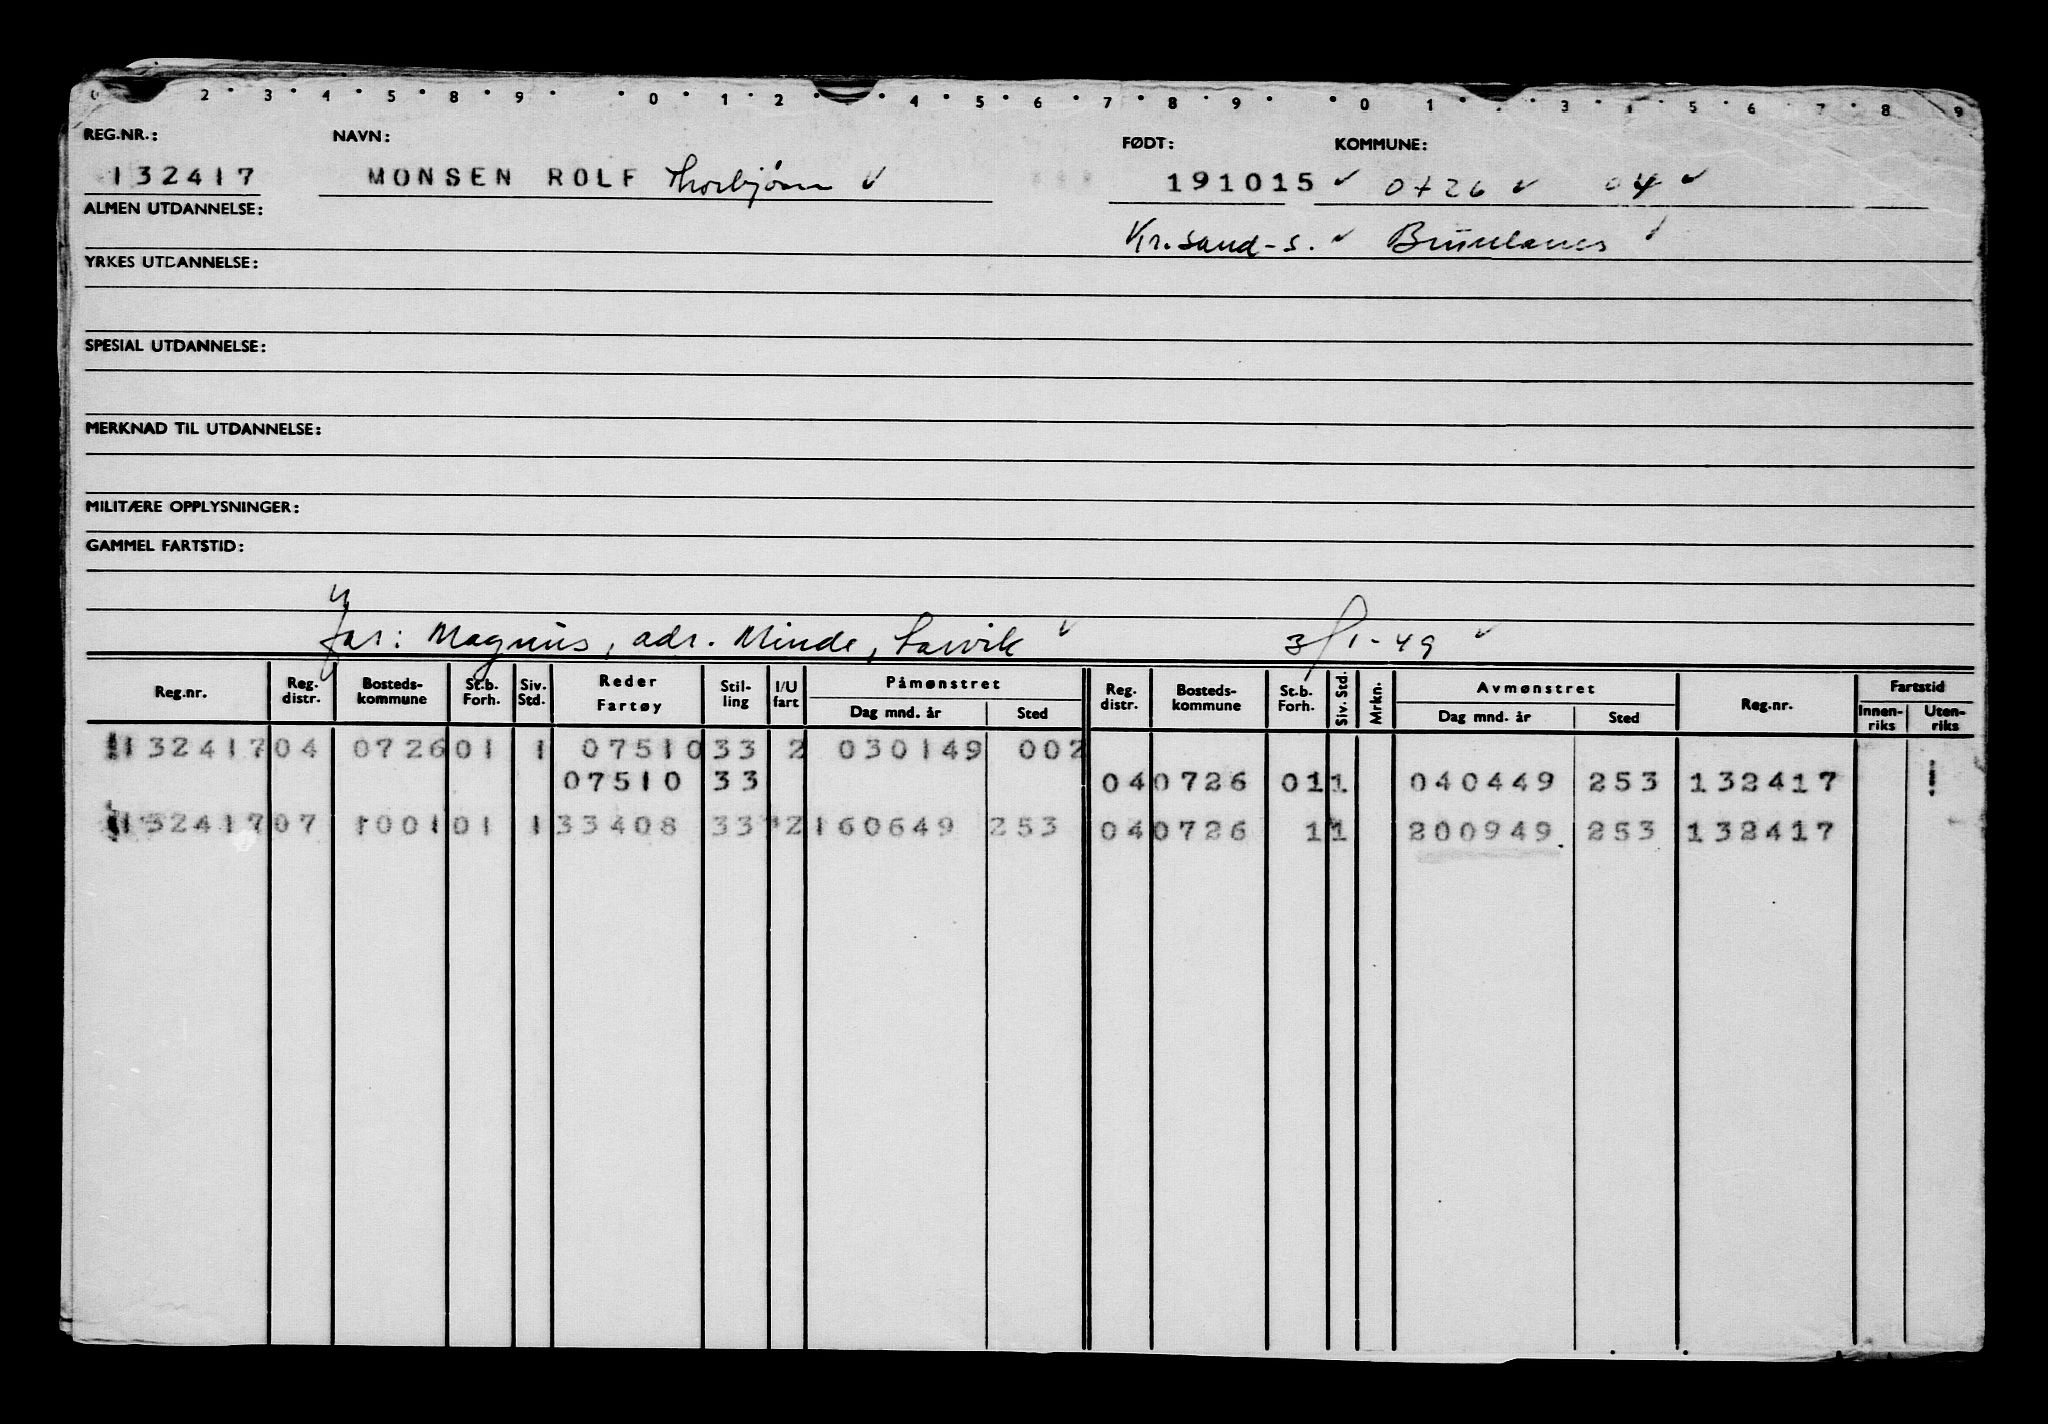 0 2 · 3 · 4 · 5 · 8 · 9 · · 0 · 1 · 2 · · 4 · 5 · 6 · 7 · 8 · 9 · · 0 · 1 · · 3 · 5 · 6 · 7 · 8 · 9
REG.NR.: NAVN: FØDT: KOMMUNE:
132417 MONSEN ROLF Thorbjørn ✓ 191015 ✓ 0726 ✓ 04 ✓
ALMEN UTDANNELSE: Kr.sand-S. ✓ Brunlanes ✓
YRKES UTDANNELSE:
SPESIAL UTDANNELSE:
MERKNAD TIL UTDANNELSE:
MILITÆRE OPPLYSNINGER:
GAMMEL FARTSTID:
far: Magnus, adr. Minde, Larvik ✓ 3/1-49 ✓
Reg.nr. Reg. distr. Bosteds-kommune St.b. Forh. Siv. Std. Reder Fartøy Stil-ling I/U fart Påmønstret Dag mnd. år Sted Reg. distr. Bosteds-kommune St.b. Forh. Siv. Std. Mrkn. Avmønstret Dag mnd. år Sted Reg.nr. Fartstid Innen-riks Uten-riks
132417 04 0726 01 1 07510 33 2 030149 002
07510 33 04 0726 01 1 040449 253 132417
132417 07 1001 01 1 33408 33 2 160649 253 04 0726 1 1 200949 253 132417